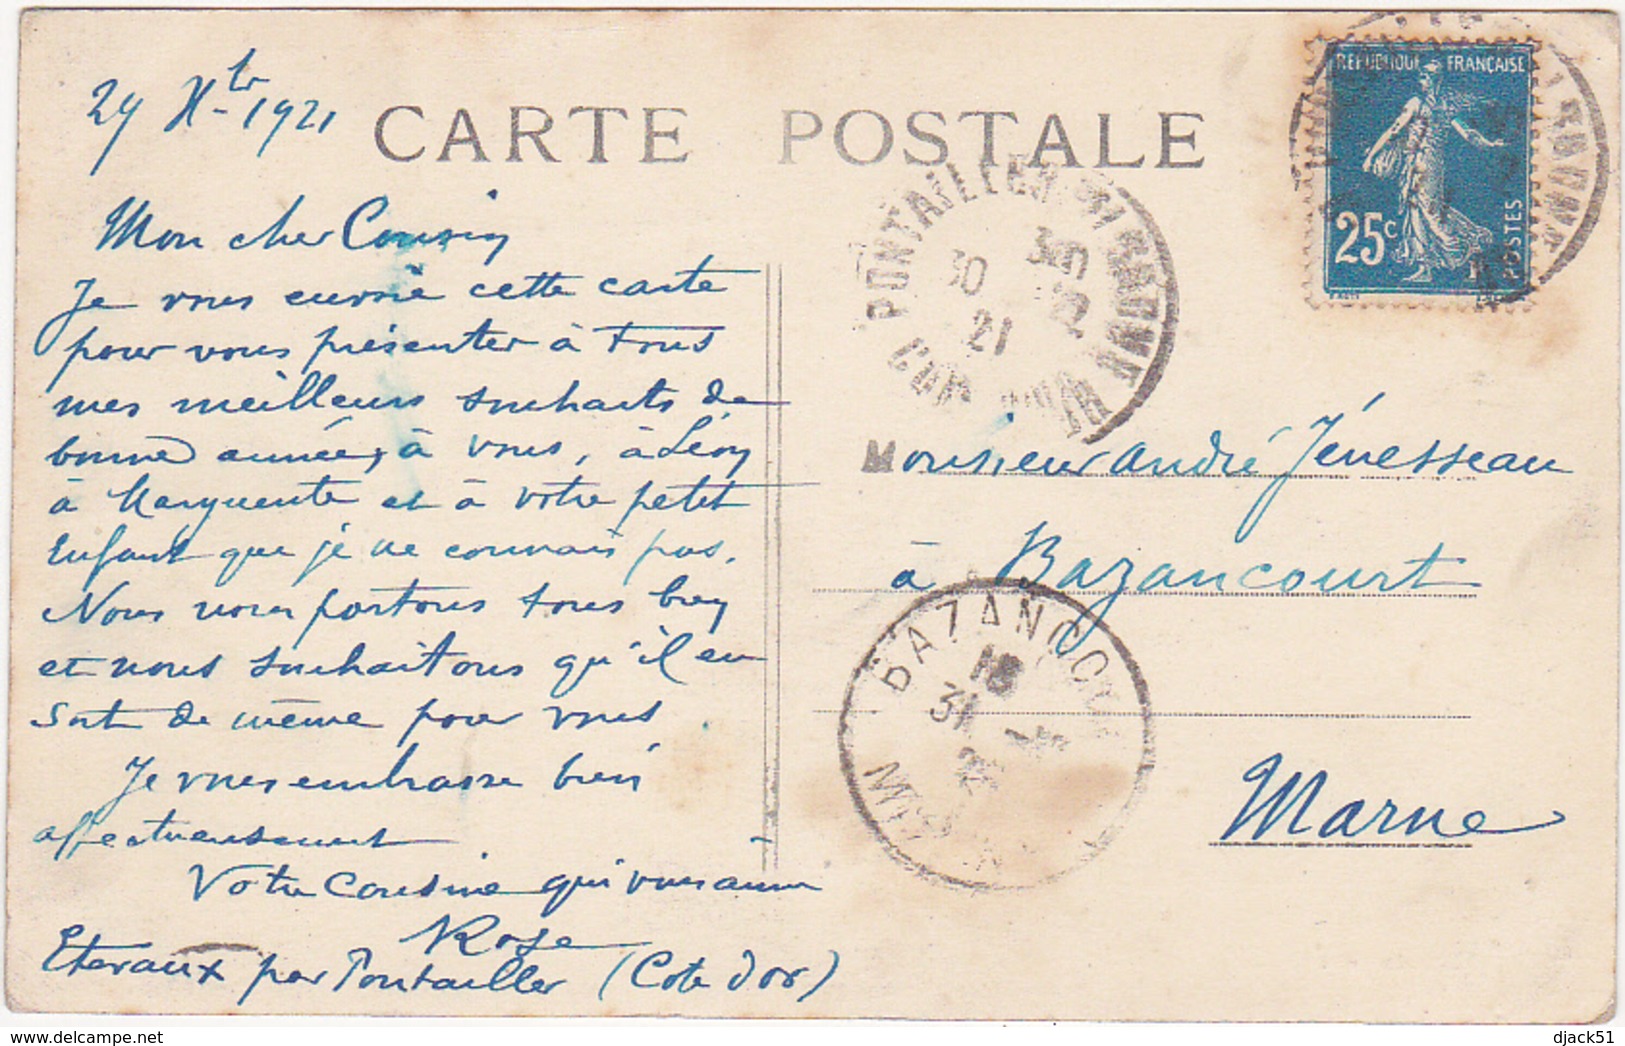 29 Xbr 1921
CARTE POSTALE
REPUBLIQUE FRANÇAISE
25c
POSTES
PONTAILLER-S/-SAONE
30
12
21
COTE D'OR
Mon cher Cousin
Je vous envoie cette carte
pour vous présenter à tous
mes meilleurs souhaits de
bonne année, à vous, à Léon
à Marguerite et à votre petit
Enfant que je ne connais pas.
Nous nous portons tous bien
et nous souhaitons qu'il en
soit de même pour vous
Je vous embrasse bien
affectueusement
Votre Cousine qui vous aime
Rose
Etevaux par Pontailler (Cote d'or)
Monsieur André Jénesseau
à Bazancourt
Marne
BAZANCOURT
31
MARNE
https://www.delcampe.net
djack51